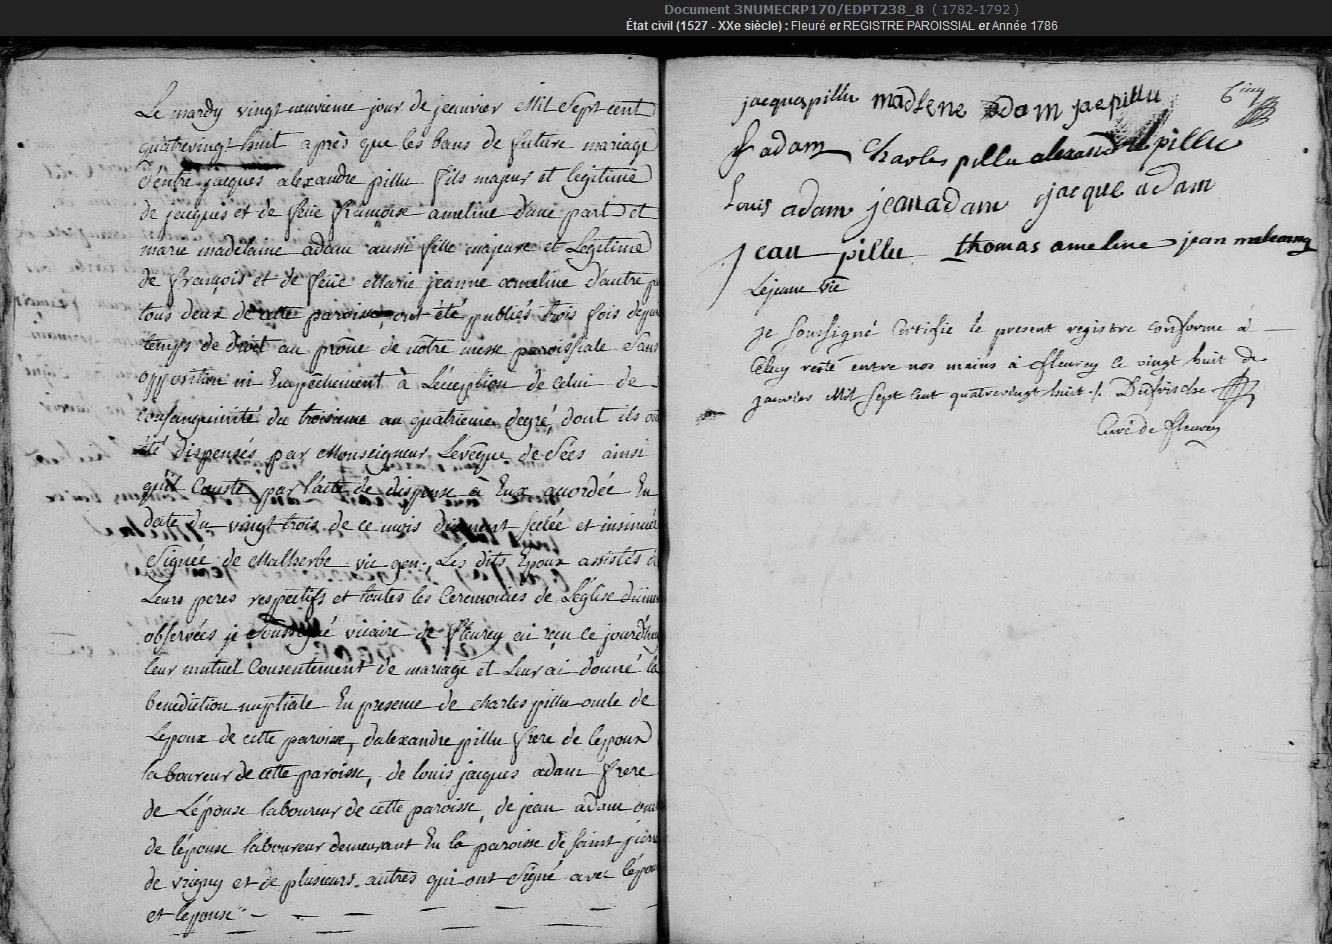 Document 3NUMECRP170/EDPT238_8 ( 1782-1792 )
État civil (1527 - XXe siècle) : Fleuré et REGISTRE PAROISSIAL et Année 1786
Le mardy vingt neuvieme jour de jeanvier Mil Sept cent
quatrevingt huit après que les bans de future mariage
d'entre jacques alexandre pillu fils majeur et legitime
de jacques et de feüe françoise ameline d'une part et
marie madelaine adam aussi fille majeure et Legitime
de françois et de feüe Marie jeanne ameline d'autre
tous deux de cette paroisse, ont été publiés trois fois
temps de droit au prône de nôtre messe paroissiale Sans
opposition ni Empêchement à L'éxception de celui de
consanguinité du troisieme au quatrieme degré, dont ils
été dispensés par Monseigneur L'évêque de Sées ainsi
qu'il Conste par l'acte de dispense à Eux accordée En
date du vingt trois de ce mois düment scelée et insinuée
Signée de Malherbe vic gen., Les dits Epoux assistés
Leurs peres respectifs et toutes les Ceremonies de L'église
observées je Soussigné vicaire de fleurey ai reçu ce jourd'huy
leur mutuel Consentement de mariage et Leur ai donné la
benediction nuptiale En presence de charles pillu oncle de
L'epoux de cette paroisse, d'alexandre pillu frere de l'epoux
laboureur de cette paroisse, de louis jacques adam frere
de L'épouse laboureur de cette paroisse, de jean adam
de l'épouse laboureur demeurant En la paroisse de saint
de vrigny et de plusieurs autres qui ont Signé avec l'époux
et l'epouse
Cinq
jacques pillu madlene adam jac pillu
f adam charles pillu alexandre pillu
Louis adam jean adam jacque adam
jean pillu thomas ameline jean
Lejeune vic
je Soussigné Certifie le present registre conforme à
Celuy resté entre nos mains à fleurey ce vingt huit de
janvier Mil Sept Cent quatrevingt huit
Curé de fleurey